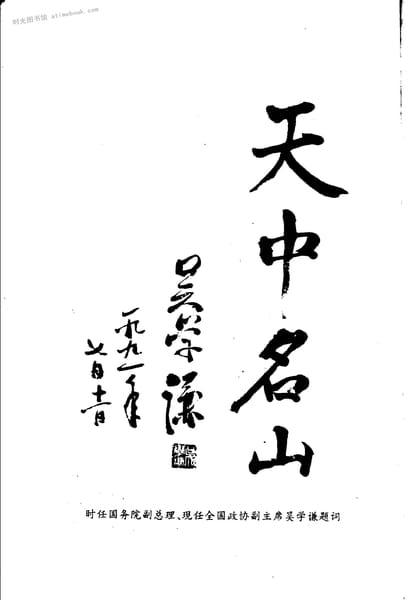 时光图书馆 atimebook.com
天中名山
吴学谦
一九九一年
七月十一日
时任国务院副总理、现任全国政协副主席吴学谦题词